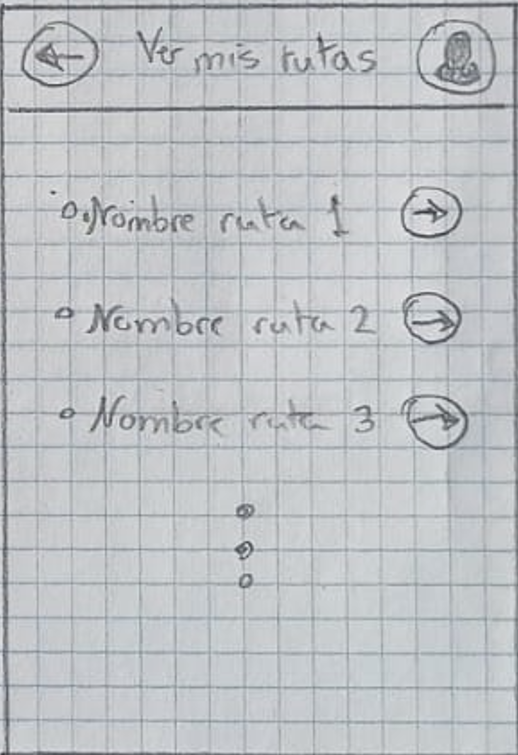 Ver mis rutas
Nombre ruta 1
Nombre ruta 2
Nombre ruta 3